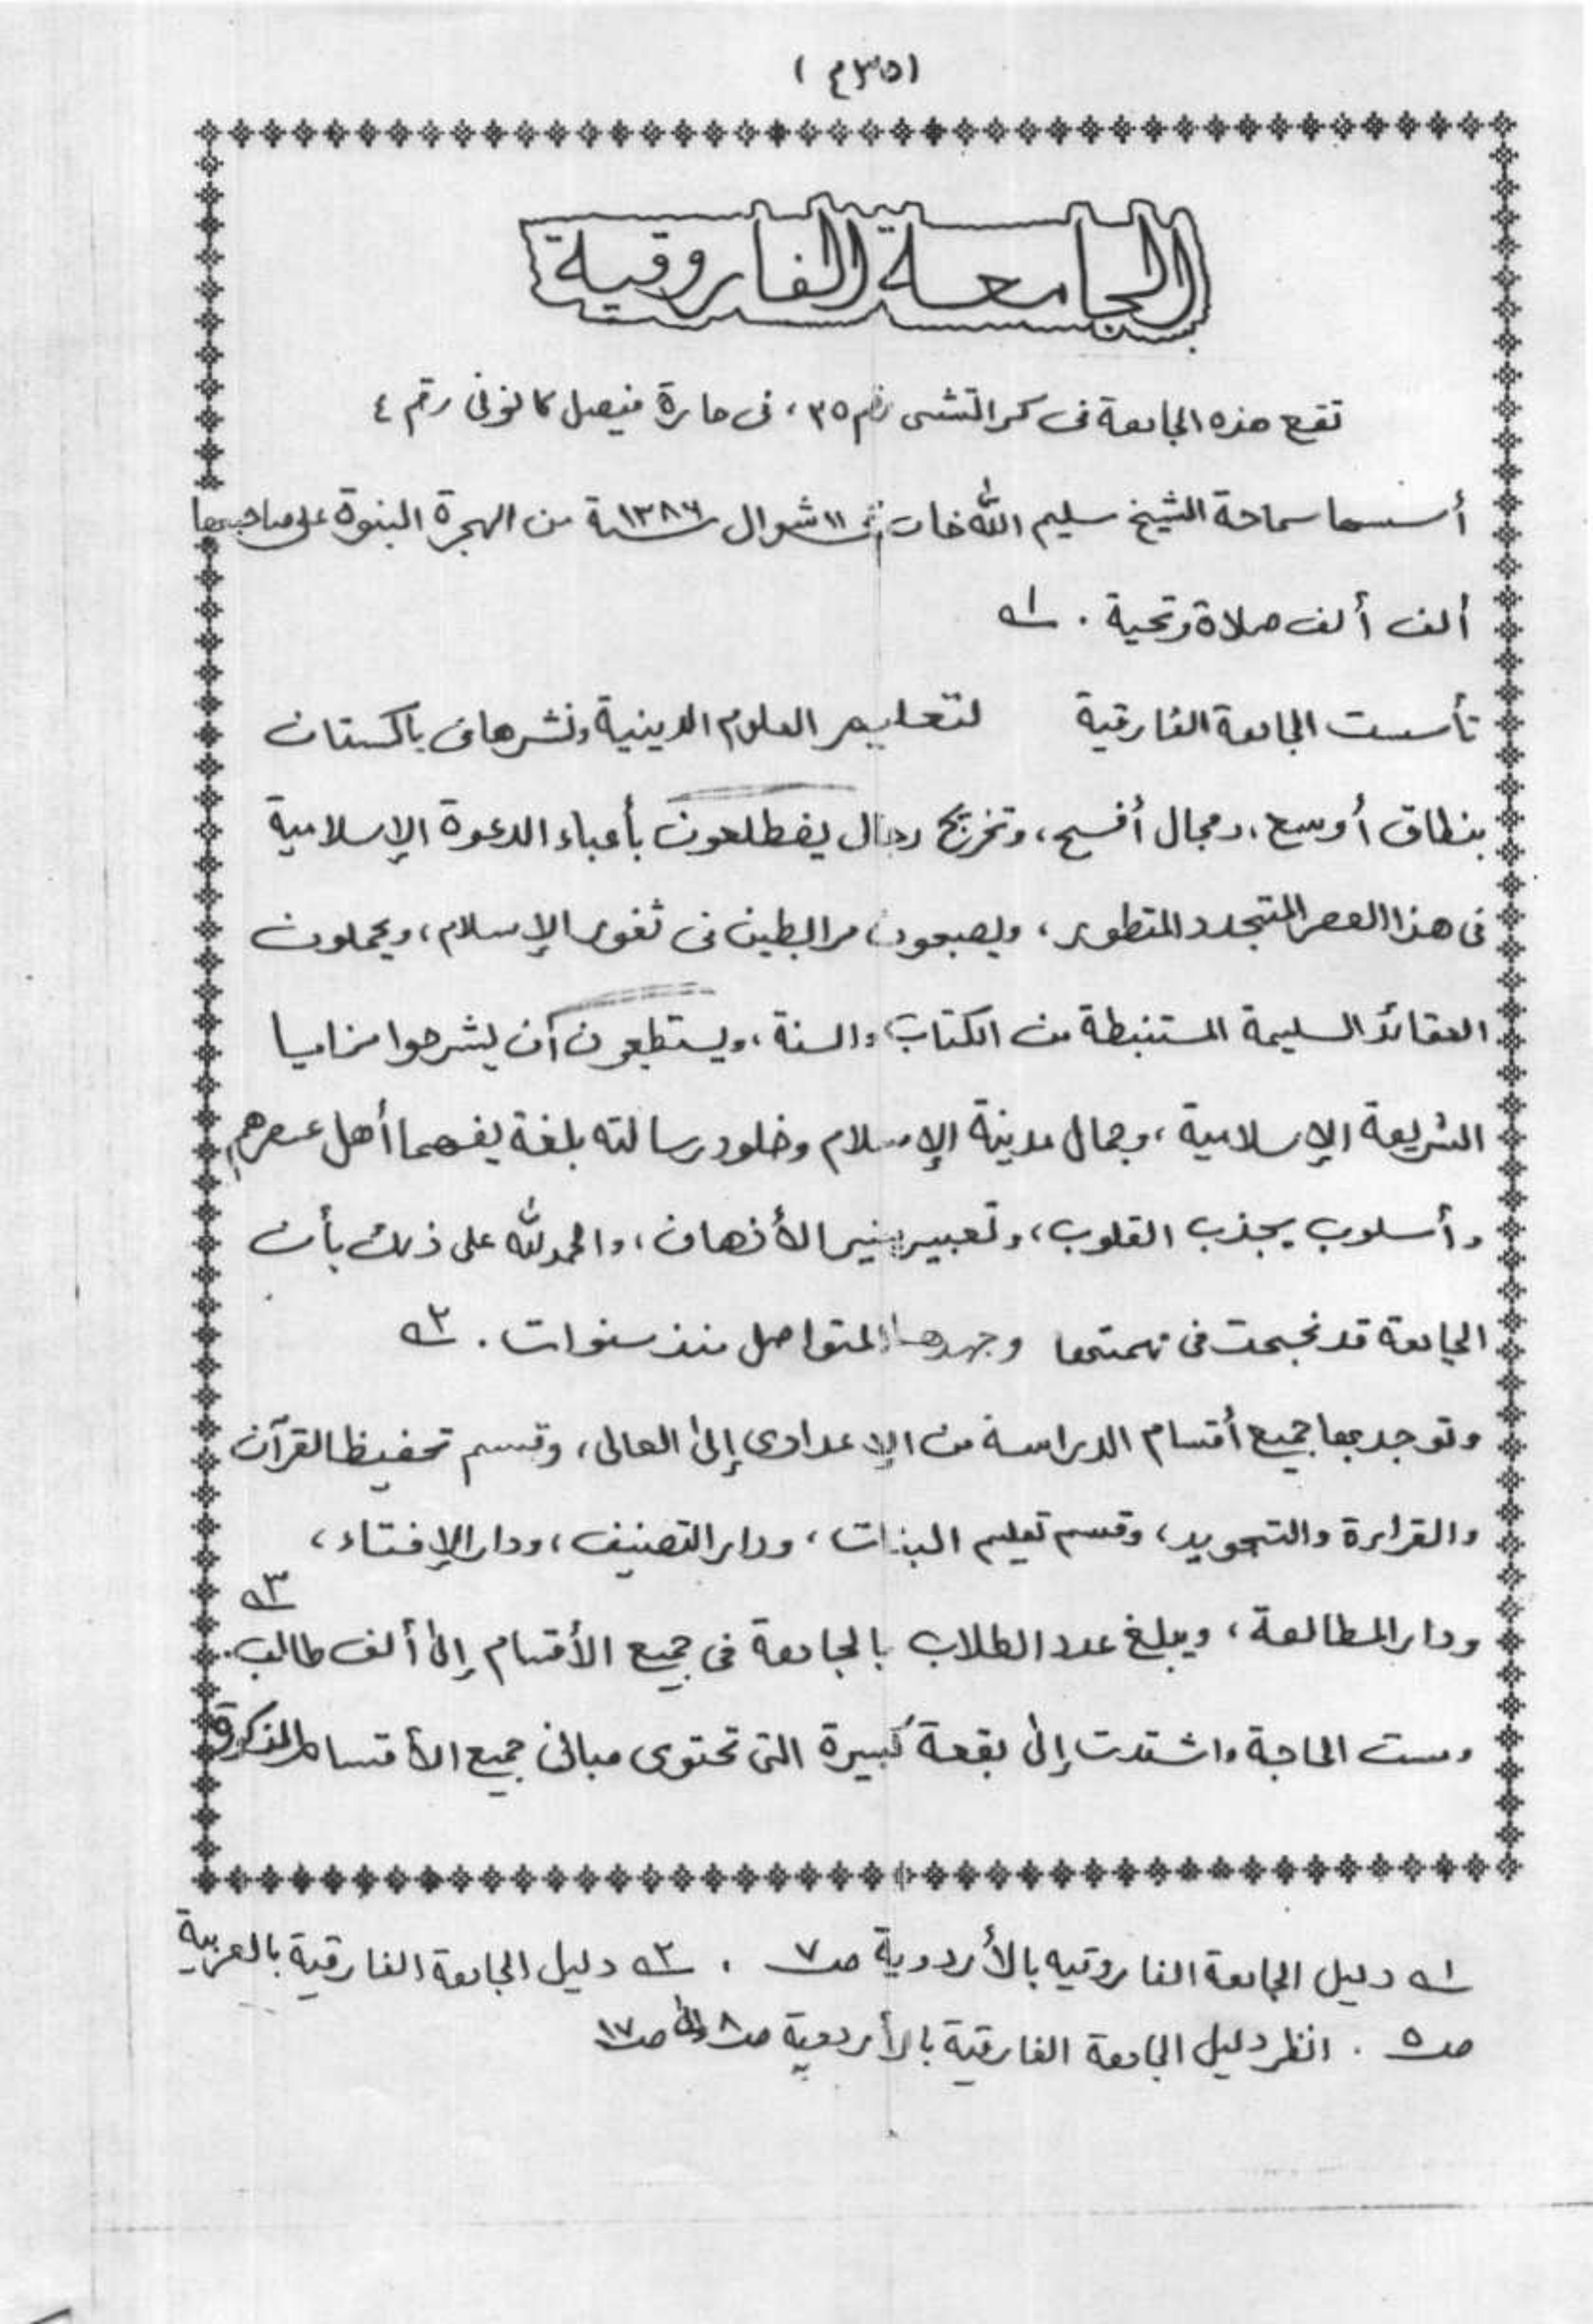 الجامعة الفاروقية
تقع هذه الجامعة فى كراتشى رقم ٣٥، فى حارة فيصل كالونى رقم ٤
أسسها سماحة الشيخ سليم الله خان ١١ شوال ١٣٨٦ـة من الهجرة النبوة على صاحبها
ألف ألف صلاة وتحية . ١ـه
تأسست الجامعة الفارقية لتعليم العلوم الدينية ونشرها فى باكستان
بنطاق أوسع، ومجال أفسح، وتخريج رجال يضطلعون بأعباء الدعوة الإسلامية
فى هذا العصر المتجدد المتطور، ويصبحون مرابطين فى ثغور الإسلام، ويحملون
العقائد السليمة المستنبطة من الكتاب والسنة، ويستطيعون أن يشرحوا مزايا
الشريعة الإسلامية، وجمال مدينة الإسلام وخلود رسالته بلغة يفهمها أهل عصرهم
وأسلوب يجذب القلوب، وتعبير ينير الأذهان، والحمد لله على ذلك بأن
الجامعة قد نجحت فى مهمتها وجهدها المتواصل منذ سنوات . ٢ـه
وتوجد بها جميع أقسام الدراسة من الإعدادى إلى العالى، وقسم تحفيظ القرآن
والقراءة والتجويد، وقسم تعليم البنات، ودار التصنيف، ودار الإفتاء،
ودار المطالعة، ويبلغ عدد الطلاب بالجامعة فى جميع الأقسام إلى ألف طالب . ٣ـه
ومست الحاجة واشتدت إلى بقعة كبيرة التى تحتوى مبانى جميع الأقسام المذكورة
١ـه دليل الجامعة الفاروقيه بالأردوية صـ٧ . ٢ـه دليل الجامعة الفارقية بالعربية
صـ٥ . انظر دليل الجامعة الفارقية بالأردوية صـ٨ إلى صـ١٧